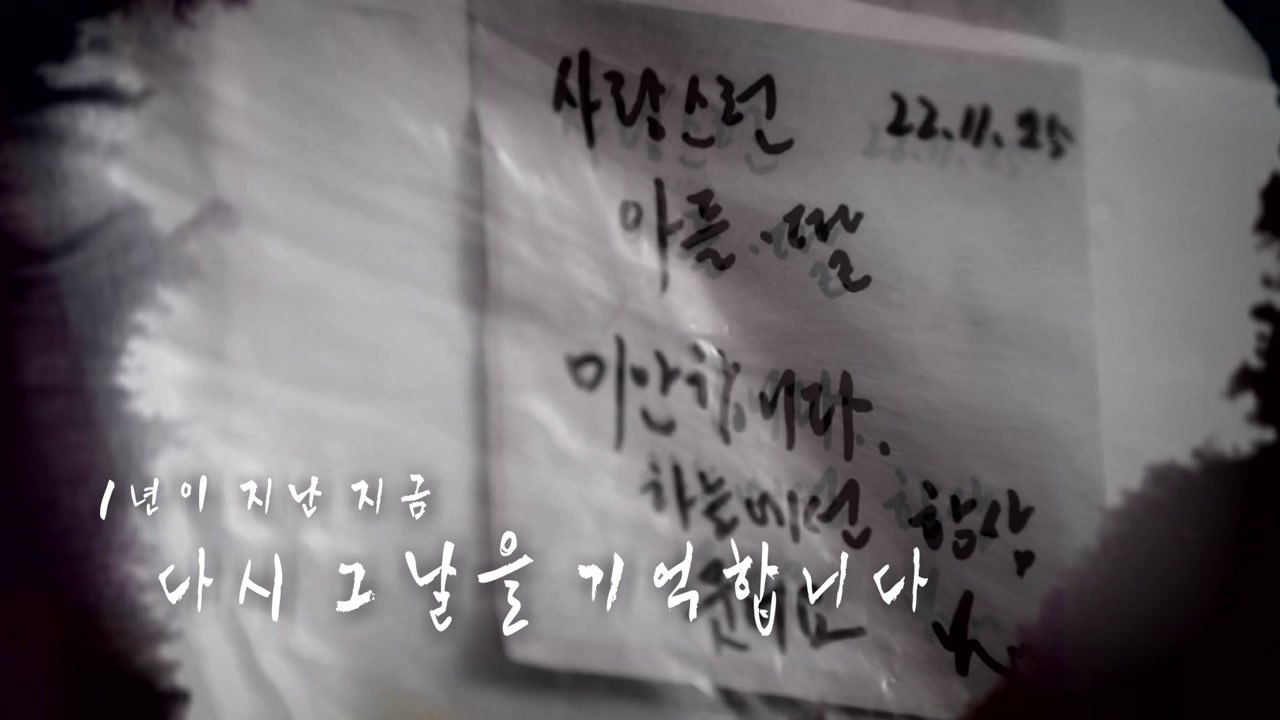 사랑스런 22.11.25
아들.딸
미안합니다.
하늘에선 항상
웃어요
1년이 지난 지금
다시 그날을 기억합니다